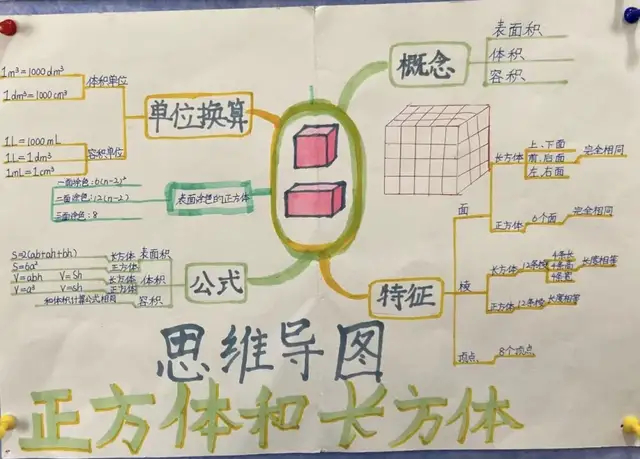 1m³=1000dm³
1dm³=1000cm³
体积单位
1L=1000mL
1L=1dm³
1mL=1cm³
容积单位
单位换算
一面涂色:6(n-2)²
二面涂色:12(n-2)
三面涂色:8
表面涂色的正方体
S=2(ab+ah+bh) 长方体
S=6a² 正方体
表面积
V=abh V=Sh 长方体
V=a³ V=Sh 正方体
体积
和体积计算公式相同 容积
公式
概念
表面积
体积
容积
特征
面
长方体
上、下面
前、后面
左、右面
完全相同
正方体 6个面 完全相同
棱
长方体 12条棱
4条长
4条高
4条宽
长度相等
正方体 12条棱 长度相等
顶点 8个顶点
思维导图
正方体和长方体